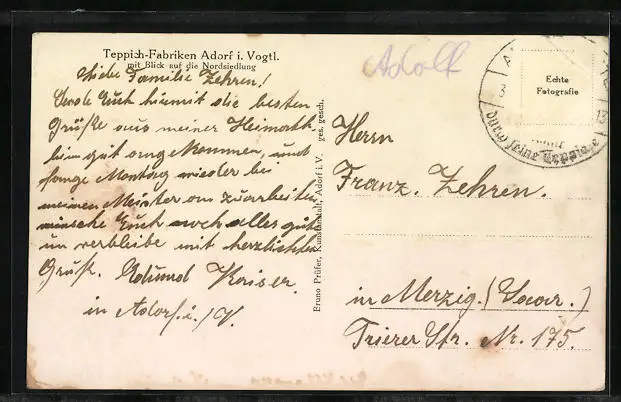 Teppich-Fabriken Adorf i. Vogtl.
mit Blick auf die Nordsiedlung
Liebe Familie Zehren!
Sende Euch hiermit die besten
Grüße aus meiner Heimath
bin gut angekommen, und
fange Montag wieder bei
meinen Meister an zuarbeiten
wünsche Euch noch alles gute
un verbleibe mit herzlichten
Gruß. Edmund Kaiser.
in Adorf. i. /V.
Bruno Prüfer, Kunstanstalt, Adorf i. V. ges. gesch.
Adolf
Echte
Fotografie
durch seine Teppiche
Herrn
Franz. Zehren.
in Merzig. (Saar.)
Trierer Str. Nr. 175.